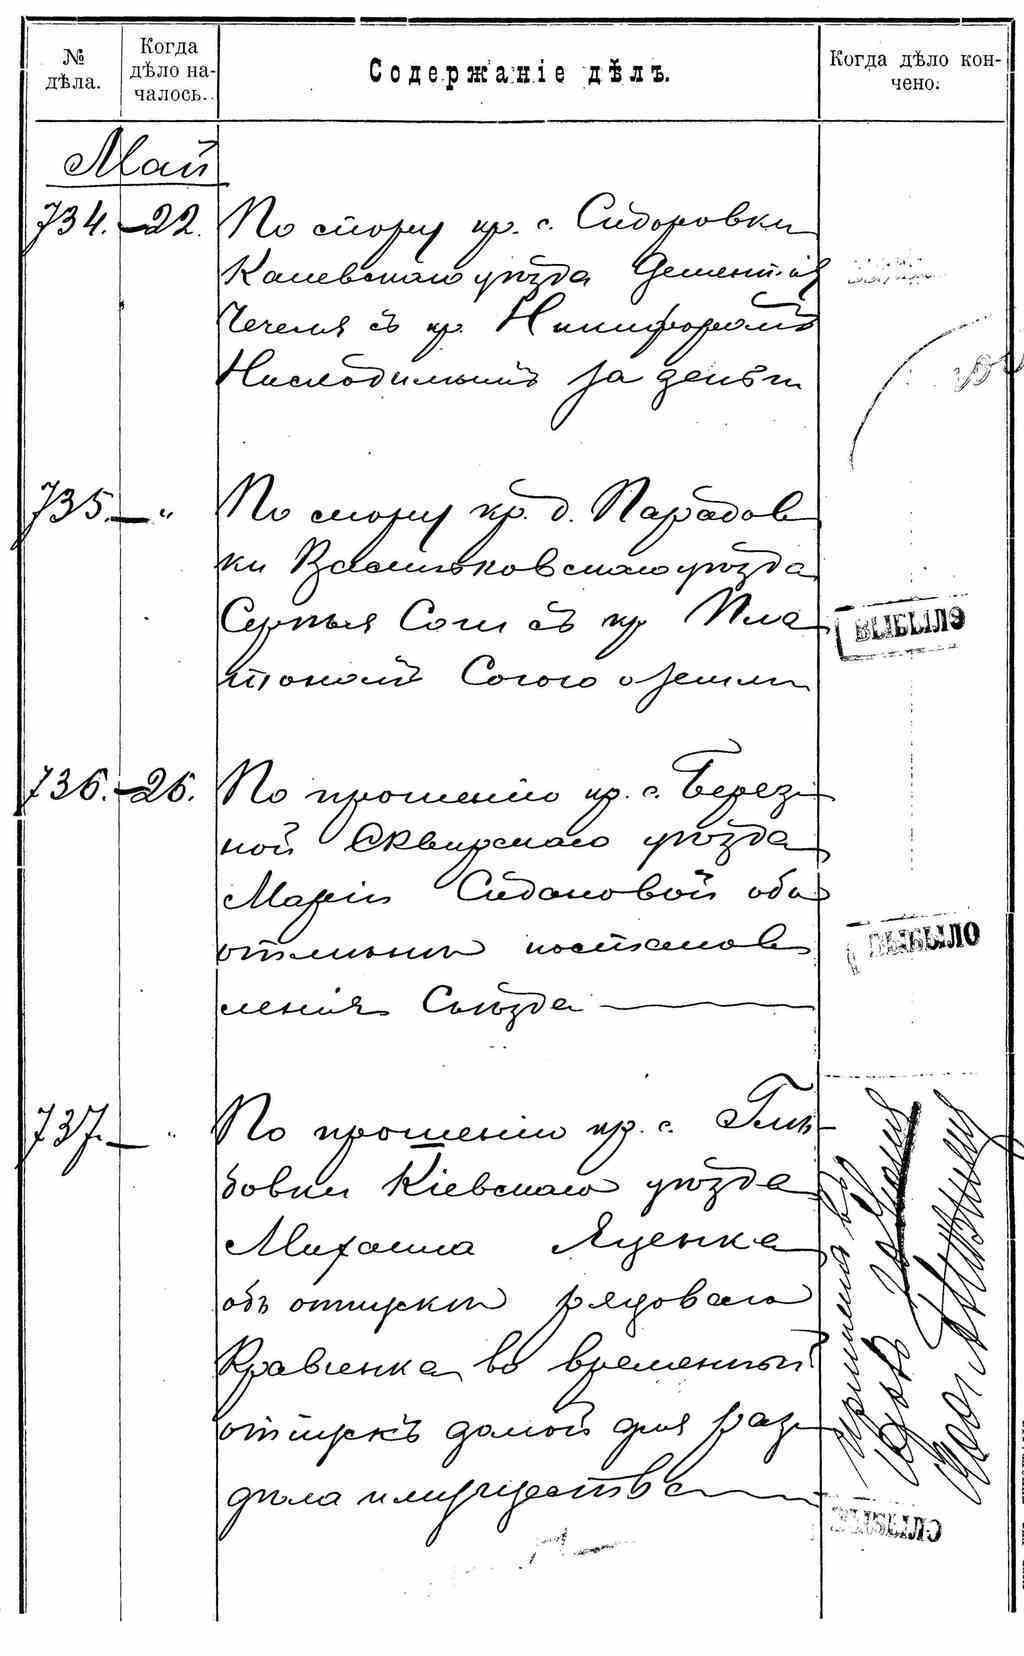 № дѣла.
Когда дѣло началось.
Содержаніе дѣлъ.
Когда дѣло кончено.
Май
734. — 22. По спору кр. с. Сидоровки
Каневскаго уѣзда Дементія
Чечеля съ кр. Никифоромъ
за деньги
735. — " По спору кр. д. Парадов
ки Васильковскаго уѣзда
Сергѣя Соги съ кр Пла
тономъ Согою о земли
ВЫБЫЛО
736. — 26. По прошенію кр. с. Берез-
ной Сквирскаго уѣзда
Маріи Сидановой объ
отмѣнѣ постанов
ленія Съѣзда
ВЫБЫЛО
737. — " По прошенію кр. с. Глѣ-
бовки Кіевскаго уѣзда
Михаила Яценка
объ отпускѣ рядоваго
Кравченка во временный
отпускъ домой для раз-
дѣла имущества
ВЫБЫЛО